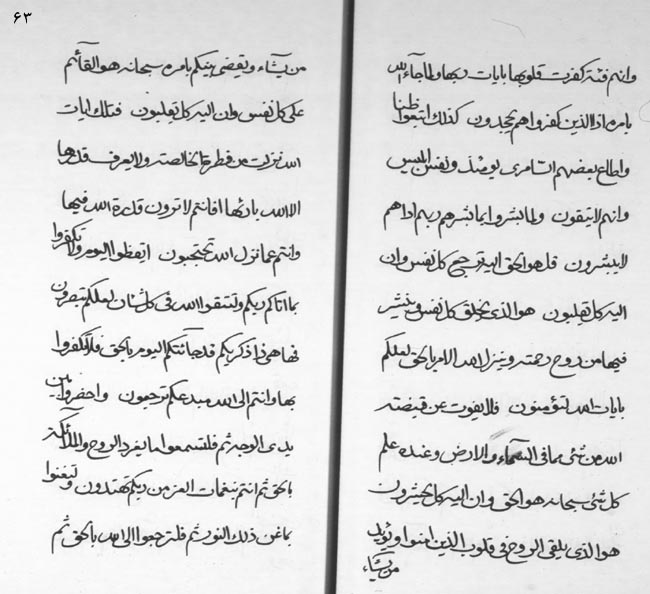 ٦٣
وانتم فئة كفرت قلوبها بايات ربها ولما جاء الله
بامره اذا الذين كفروا هم يجحدون كذلك اتبعوا ظنا
واطاع بعضهم السامري يومئذ ونفس ابليس
وانهم لا يتقون ولما بشروا بما بشرهم ربهم اذا هم
لا يبشرون قل هو الحق اليه ترجع كل نفس وان
اليه كل تقلبون هو الذي يخلق كل نفس وينشر
فيها من روح رحمته وينزل الله الامر بالحق لعلكم
بايات الله لتؤمنون فلا يفوت عن قبضته
الله من شئ مما في السماء والارض وعنده علم
كل شئ سبحانه هو الحق وان اليه كل يحشرون
هو الذي يلقي الروح في قلوب الذين امنوا ويؤيد
من يشاء
من يشاء ويقضي بينكم بامره سبحانه هو القائم
على كل نفس وان اليه كل تقلبون فتلك ايات
الله نزلت من فطرة الخالصة ولا يعرف قدرها
الا الله بارئها افانتم لا ترون قدرة الله فيها
وانتم عما نزل الله تحتجبون اتعظوا اليوم ولا تكفروا
بما اتاكم ربكم ولتتقوا الله في كل شان لعلكم تبصرون
فها هي ذا ذكر ربكم قد جائتكم اليوم بالحق فلا تكفروا
بها وانتم الى الله مبدعكم ترجعون واحضروا بين
يدي الوجه ثم فلتسمعوا ما يغرد الروح والملائكة
بالحق ثم انتم بنغمات العز من ربكم تهتدون ولتبغوا
بما غن ذلك النور ثم فلترجعوا الى الله بالحق ثم